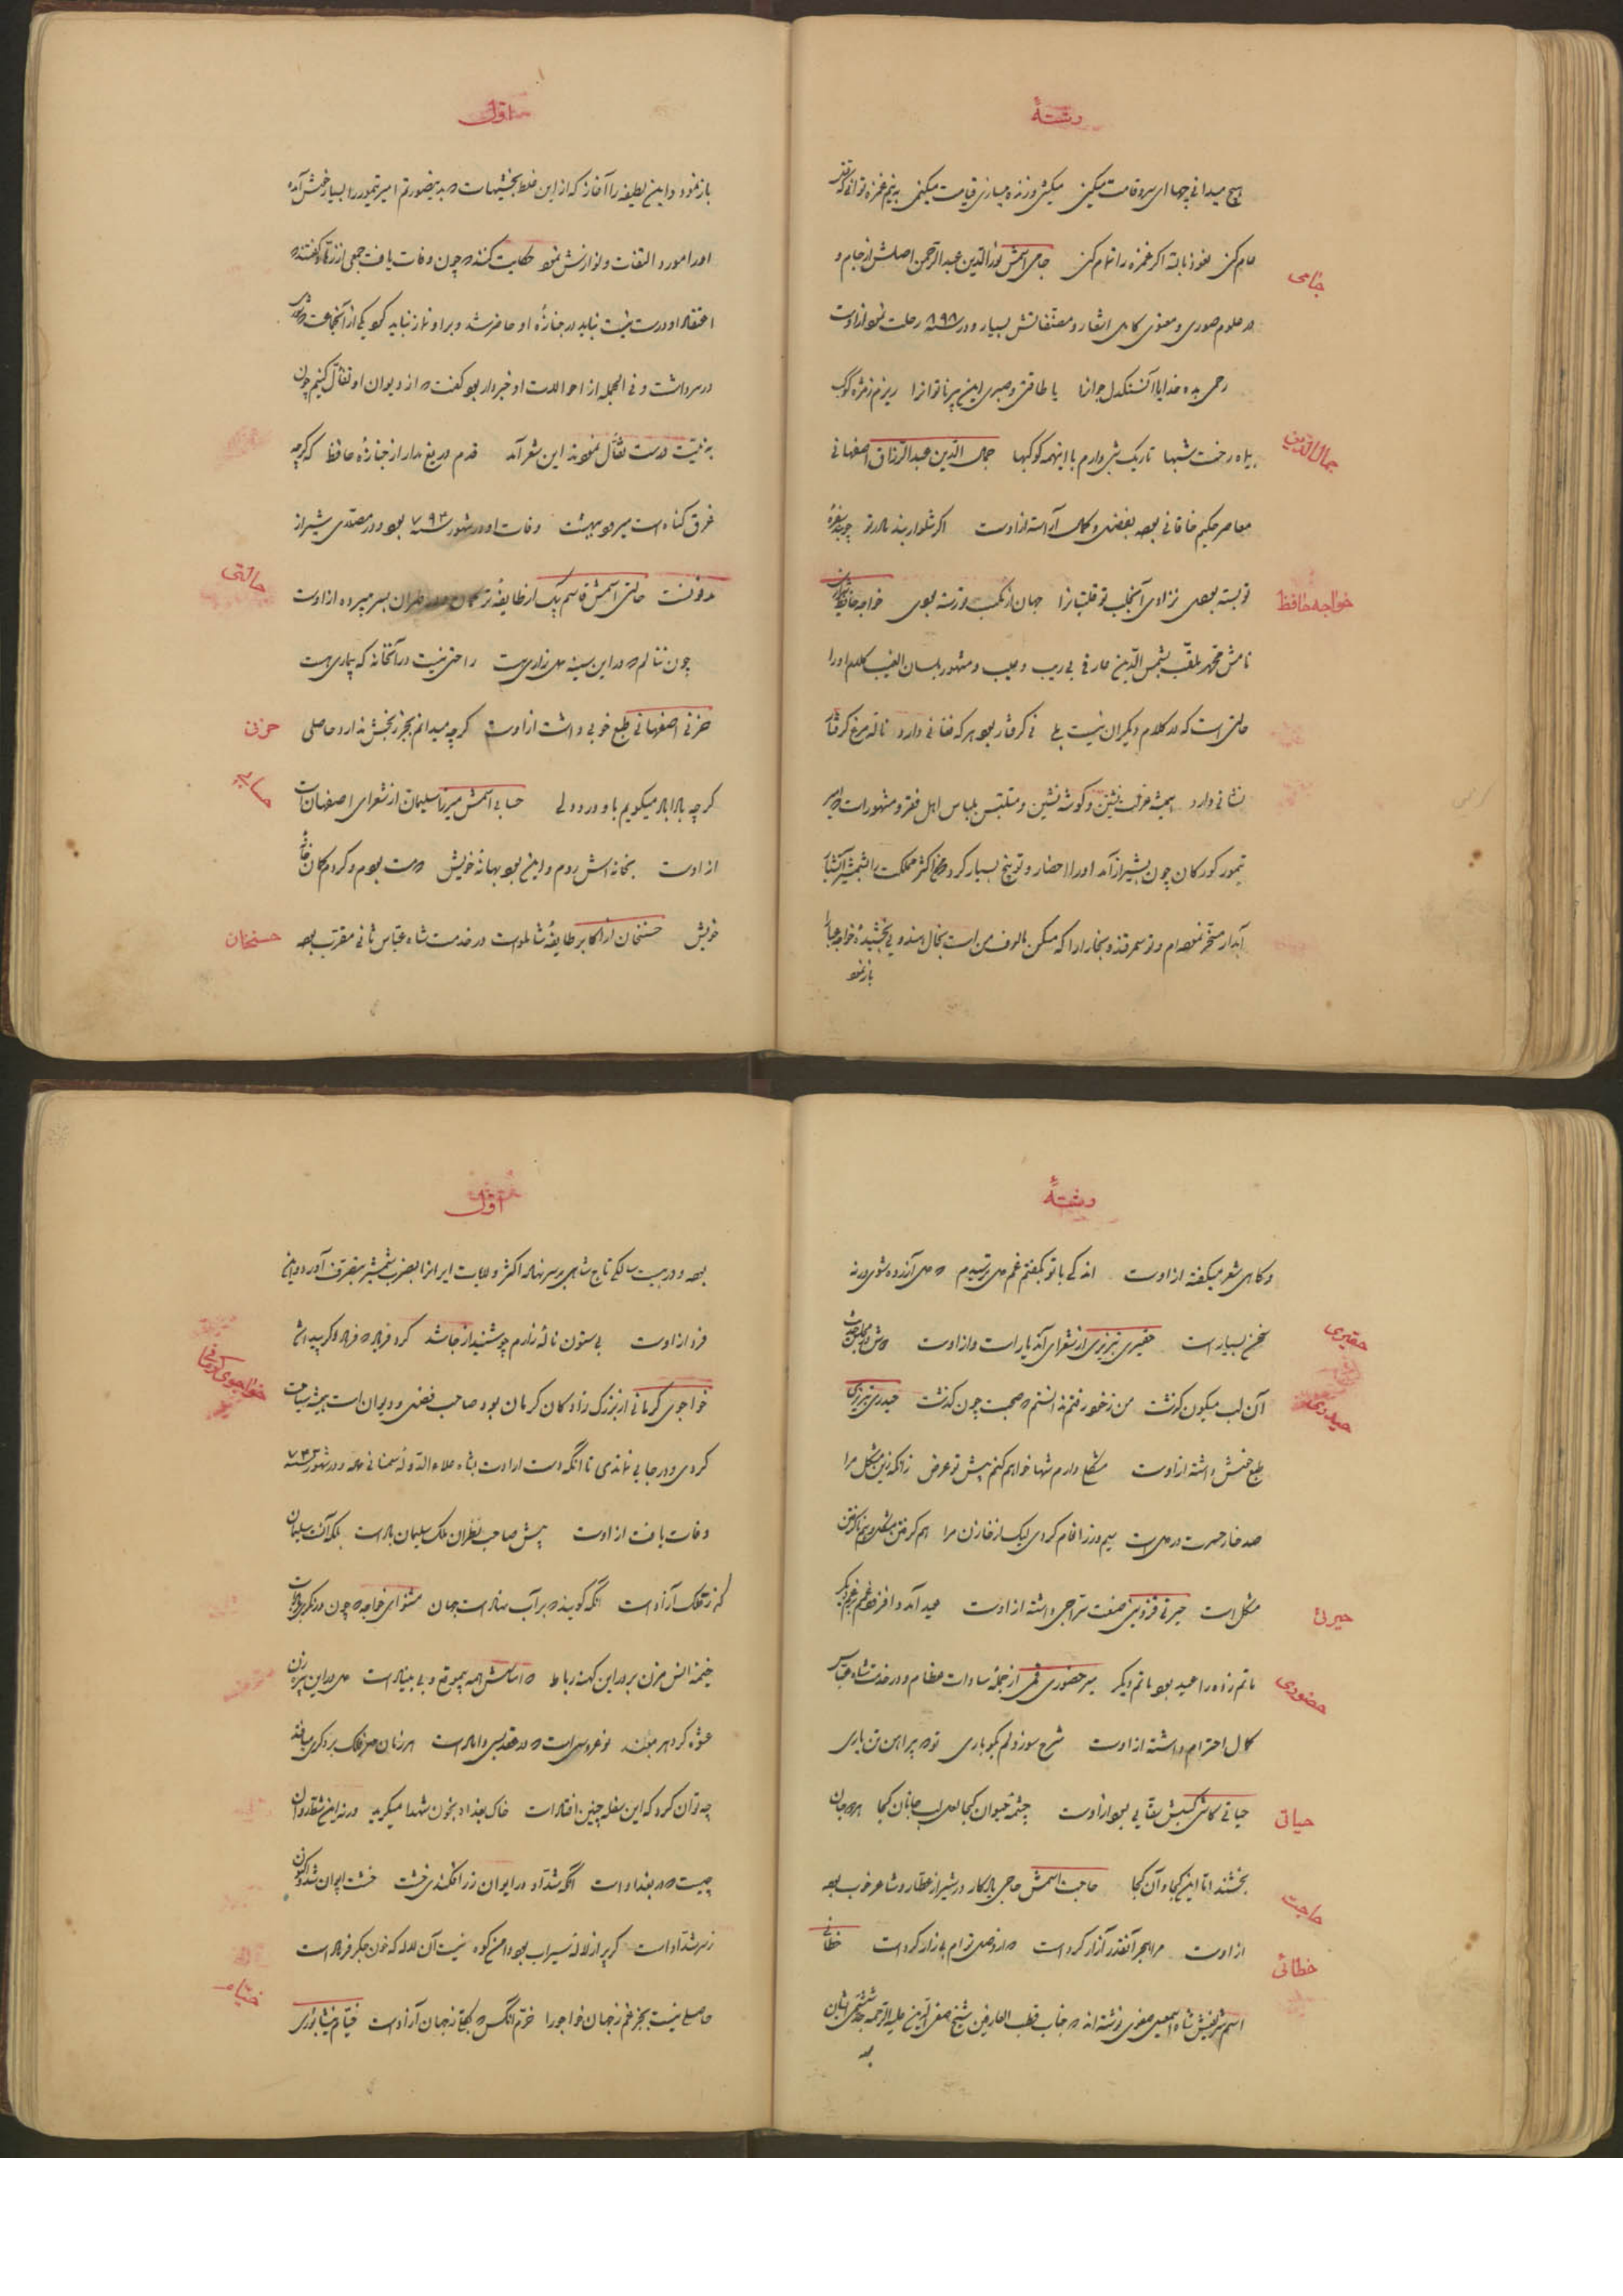 رشتهٔ
هیچ میدانی چها ای سرو قامت میکنی میکشی و زنده میسازی قیامت میکنی به نیم غمزه توانی که قتل
عام کنی نعوذ بالله اگر غمزه را تمام کنی جامی اسمش نورالدین عبدالرحمن اصلش از جام و
جامی
در علوم صوری و معنوی کامل اشعار و مصنفاتش بسیار و در سنه ۸۹۸ رحلت نمود از اوست
رحمی بده خدایا آن سنگدل جوانرا یا طاقتی و صبری این پیر ناتوانرا ریزم ز مژه کوکب
بی ماه رخت شبها تاریک شبی دارم با اینهمه کوکبها جمال الدین عبدالرزاق اصفهانی
جمال الدین
معاصر حکیم خاقانی بوده بفضل و کمال آراسته از اوست اگر شلوار بند مادر تو چو بند سفره
تو بسته بودی نزادی آنجلب تو قلتبانرا جهان از نکبت تو رسته بودی خواجه حافظ شیرازی
خواجه حافظ
نامش محمد ملقب بشمس الدین عارفی بی ریب و عیب و مشهور بلسان الغیب کلام او را
حالتی است که در کلام دیگران نیست بلی نی گرفتار بود هر که فغانی دارد ناله مرغ گرفتار
نشانی دارد همیشه عزلت نشین و گوشه نشین و متلبس بلباس اهل فقر و مشهور است که امیر
تیمور کورکان چون بشیراز آمد او را احضار و توبیخ بسیار کرد که من اکثر مملکت را بشمشیر آتشبار
آبدار مسخر نموده ام و تو سمرقند و بخارا را که مسکن مالوف من است بخال هندوئی بخشیدهٔ خواجه عبا را
باز نمود
اول
باز نمود و این لطیفه را آغاز که از این غلط بخشیهاست که بدینصورتم امیر تیمور را بسیار خوش آمده
او را مورد التفات و نوازش نمود حکایت کنند که چون وفات یافت جمعی از زهاد گفتند که
اعتقاد او درست نیست نباید در جنازهٔ او حاضر شد و بر او نماز نباید کرد یکی از آنجماعت که شوری
در سر داشت و فی الجمله از احوالات او خبردار بود گفت که از دیوان او تفأل کنیم چون
به نیت درست تفأل نمودند این شعر آمد قدم دریغ مدار از جنازهٔ حافظ که گرچه
غرق گناه است میرود ببهشت وفات او در شهور سنه ۷۹۲ بود و در مصلای شیراز
مدفونست حالتی اسمش قاسم بیک از طایفهٔ ترکمان و در طهران بسر میبرده از اوست
حالتی
چون ننالم که در این سینه دل زاری هست راحتی نیست در آنخانه که بیماری هست
حزنی اصفهانی طبع خوبی داشت از اوست گرچه میدانم بجز رنجش ندارد حاصلی
حزنی
گرچه بلا بلا میگویم با او درد دلی حسابی اسمش میرزا سلیمان از شعرای اصفهان است
حسابی
از اوست بخانه اش روم و این بود بهانهٔ خویش که مست بودم و کردم گمان خانهٔ
خویش حسنخان از اکابر طایفهٔ شاملو است در خدمت شاه عباس ثانی مقرب بوده
حسنخان
رشتهٔ
و گاهی شعر میگفته از اوست اندکی با تو بگفتم غم دل ترسیدم که دل آزرده شوی ورنه
سخن بسیار است حقیری تبریزی از شعرای آندیار است و از اوست
حقیری
آن لب میگون گذشت من ز خود رفتم ندانستم که صحبت چون گذشت حیدری تبریزی
حیدری
طبع خوش داشته از اوست مشکلی دارم شها خواهم کنم پیش تو عرض زانکه زین مشکل مرا
صد خار حسرت در دل است سیم و زر انعام کردی لیک از خازن مرا هم گرفتن مشکل و هم ناگرفتن
مشکل است حیرتی قزوینی صنعت سراجی داشته از اوست عید آمد و افزود غمم را غم دیگر
حیرتی
ماتم زده را عید بود ماتم دیگر میر حضوری قمی از جملهٔ سادات عظام و در خدمت شاه عباس
حضوری
کمال احترام داشته از اوست شرح سوز دلم بگو باری تو که پیراهن تن یاری
حیاتی کاشی کسبش سقائی بود از اوست چشمه حیوان کجا لعل لب جانان کجا هر دو جان
حیاتی
بخشند اما این کجا و آن کجا حاجت اسمش حاجی بابا کار در شیراز عطار و شاعر خوب بوده
حاجت
از اوست مرا هجر آنقدر آزار کرده است که از وصل توام بیزار کرده است خطائی
خطائی
اسم شریفش شاه اسمعیل صفوی نوشته اند که جناب قطب العارفین شیخ صفی الدین علیه الرحمه جد ششمی ایشان
اول
بوده و در بیست سالگی تاج شاهی بر سر نهاده اکثر ولایات ایرانرا بضرب شمشیر بتصرف آورد
فرد از اوست بیستون نالهٔ زارم چو شنید از جا شد کرد فریاد که فرهاد دگر پیدا شد
خواجوی کرمانی از بزرگ زادگان کرمان بود صاحب فضل و دیوان است همیشه سیاحت
خواجوی کرمانی
کردی و در جایی نماندی تا آنکه دست ارادت بشاه علاء الدوله سمنانی داده و در شهور سنه ۷۴۲
وفات یافت از اوست پیش صاحب نظران ملک سلیمان باد است بلکه آنست سلیمان
که ز ملک آزاد است آنکه گویند که بر آب نهاده است جهان مشنو ای خواجه که چون درنگری بر باد است
خیمهٔ انس مزن بر در این کهنه رباط که اساسش همه بیموقع و بی بنیاد است دل در این پیرزن
عشوه گر دهر مبند نو عروسی است که در عقد بسی داماد است هر زمان مهر فلک بر دگری میافتد
چه توان کرد که این سفله چنین افتاد است خاک بغداد بخون شهدا میگرید ورنه این شط روان
چیست که در بغداد است آنکه شداد در ایوان زر افکندی خشت خشت ایوان شه اکنون
ز سر شداد است گر پر از لالهٔ سیراب بود دامن کوه نیست آن لاله که خون جگر فرهاد است
حاصلی نیست بجز غم ز جهان خواجو را خرم آنکس که بکلی ز جهان آزاد است خیام نیشابوری
خیام